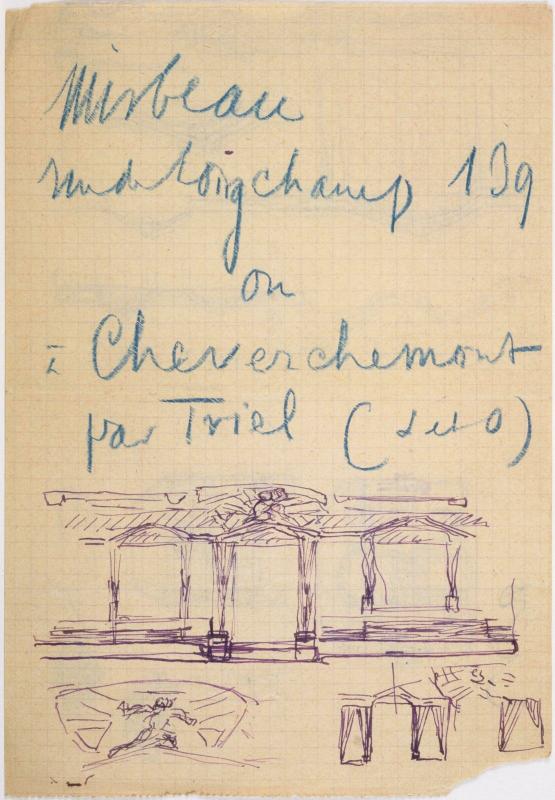 Mirbeau
rue de Longchamp 139
ou
à Cheverchemont
par Triel (S et O)